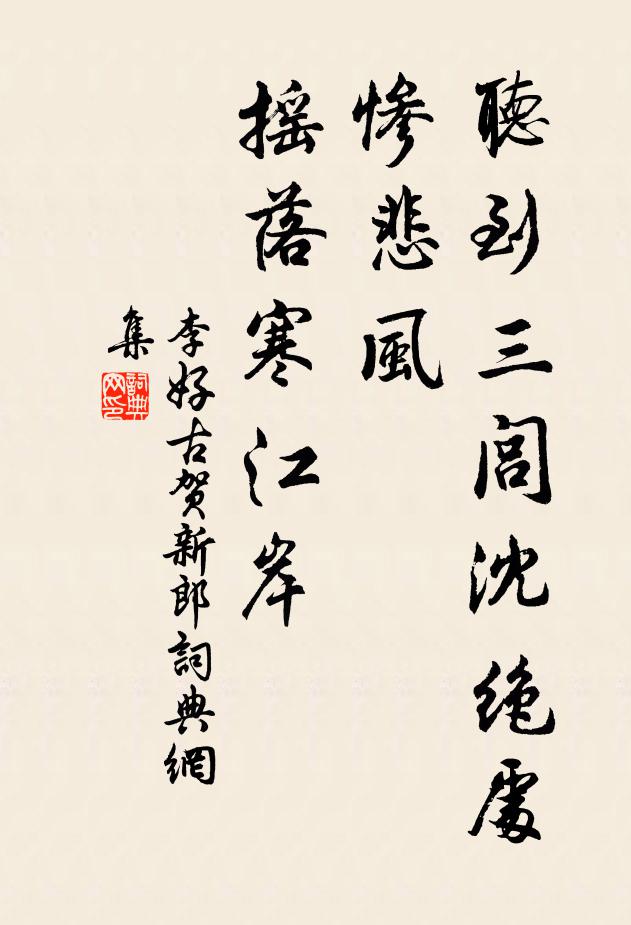 聽到三閭沈絶處
慘悲風
搖落寒江岸
李好古賀新郎詞典網
集
詞典
网印